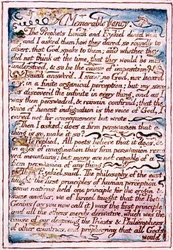 A Memorable Fancy.
The Prophets Isaiah and Ezekiel dined with
me, and I asked them how they dared so roundly to
assert. that God spake to them; and whether they
did not think at the time, that they would be mis-
understood, & so be the cause of imposition.
Isaiah answer'd. I saw no God, nor heard
any, in a finite organical perception; but my sen-
ses discover'd the infinite in every thing, and as I
was then perswaded, & remain confirm'd; that the
voice of honest indignation is the voice of God, I
cared not for consequences but wrote.
Then I asked: does a firm perswasion that a
thing is so, make it so?
He replied. All poets believe that it does, &
in ages of imagination this firm perswasion remo-
ved mountains; but many are not capable of a
firm perswasion of any thing.
Then Ezekiel said. The philosophy of the east
taught the first principles of human perception
some nations held one principle for the origin &
some another, we of Israel taught that the Poetic
Genius (as you now call it) was the first principle
and all the others merely derivative, which was the
cause of our despising the Priests & Philosophers
of other countries, and prophecying that all Gods